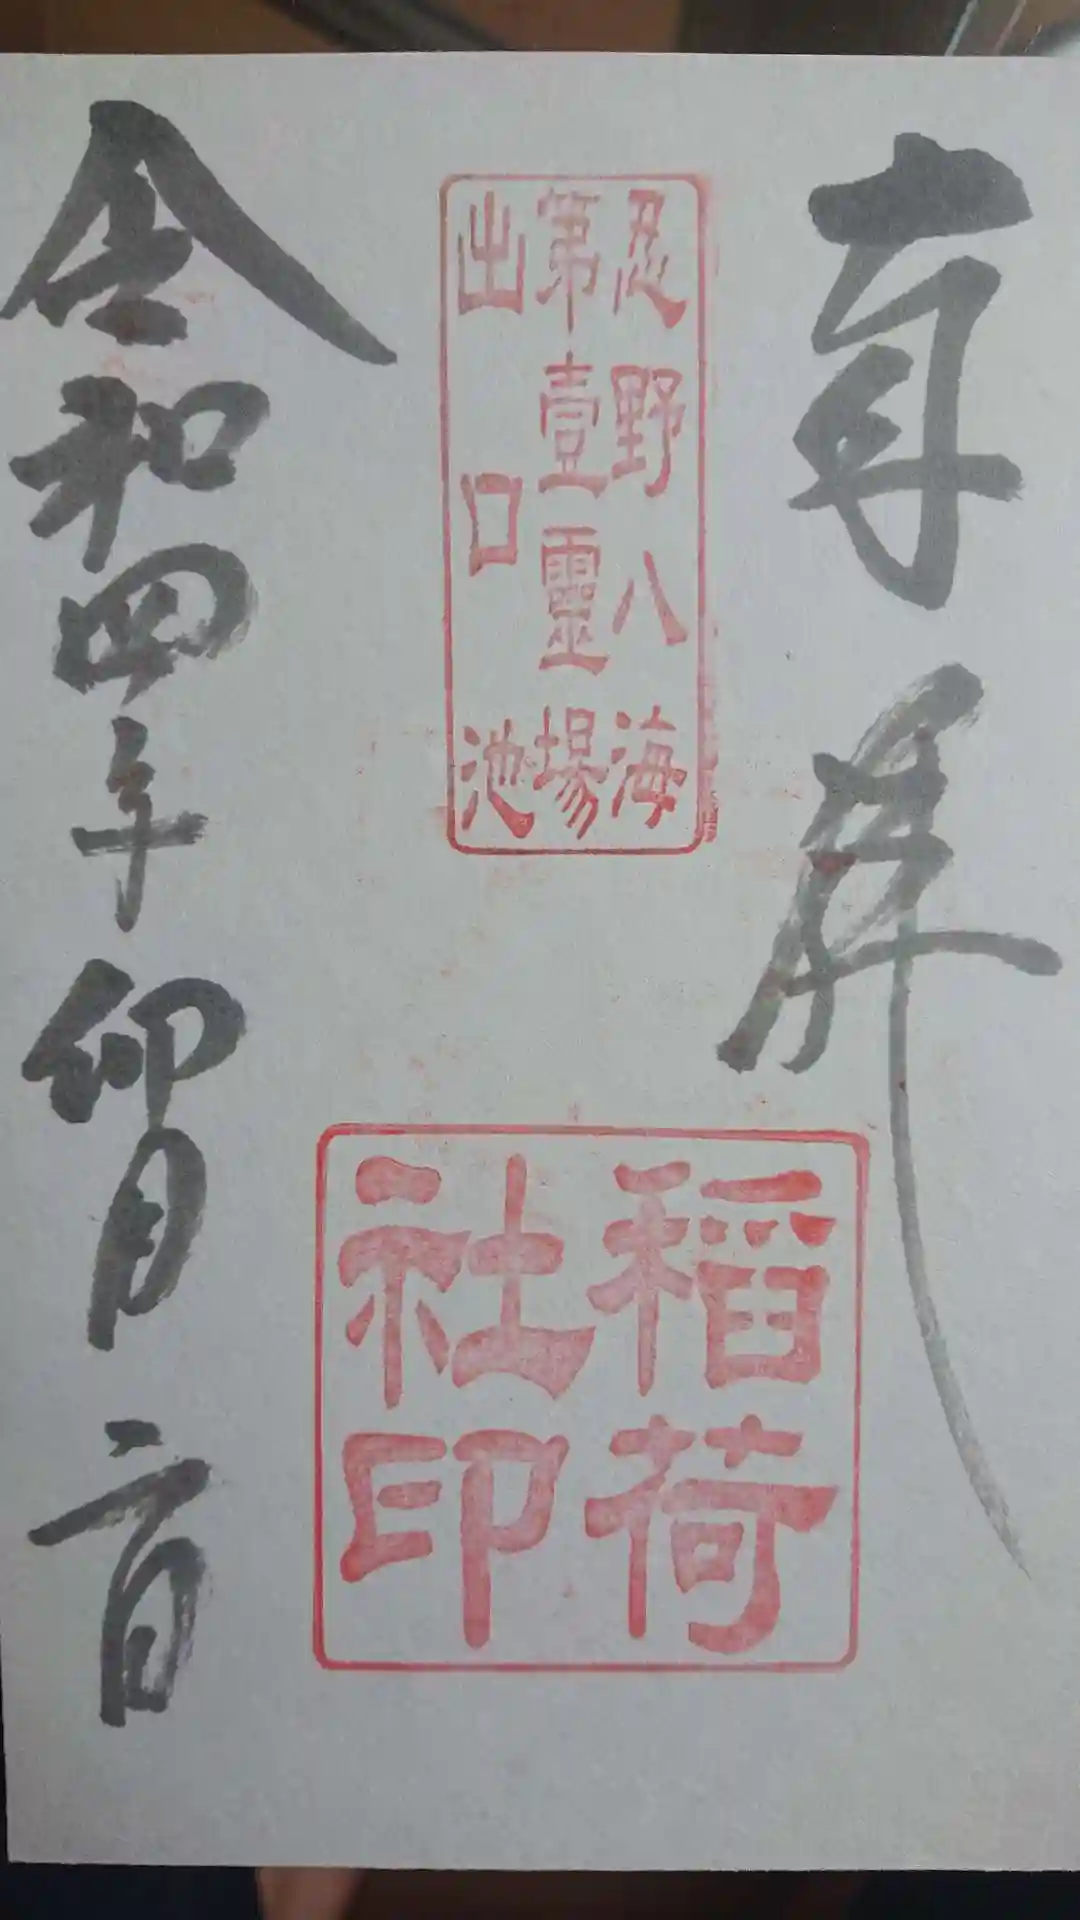 奉拝
忍野八海
第壹靈場
出口池
稲荷
社印
令和四年卯月二日